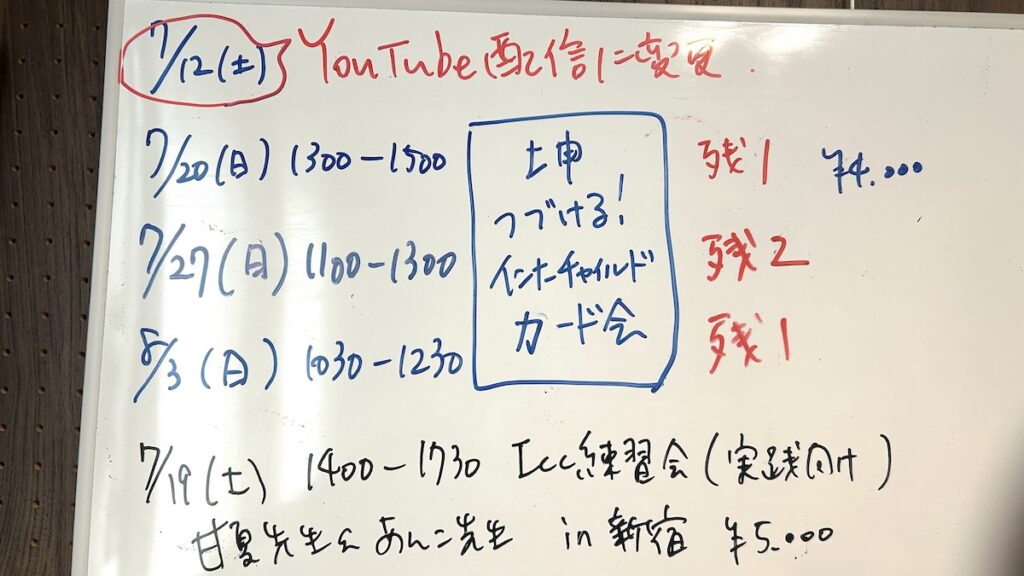 7/12(土) YouTube配信に変更.
7/20(日) 1300-1500 残1 ¥4.000
7/27(日) 1100-1300 残2
8/3(日) 1030-1230 残1
土申
つづける!
インナーチャイルド
カード会
7/19(土) 1400-1730 Icc練習会(実践向け)
甘夏先生& あんこ先生 in 新宿 ¥5.000